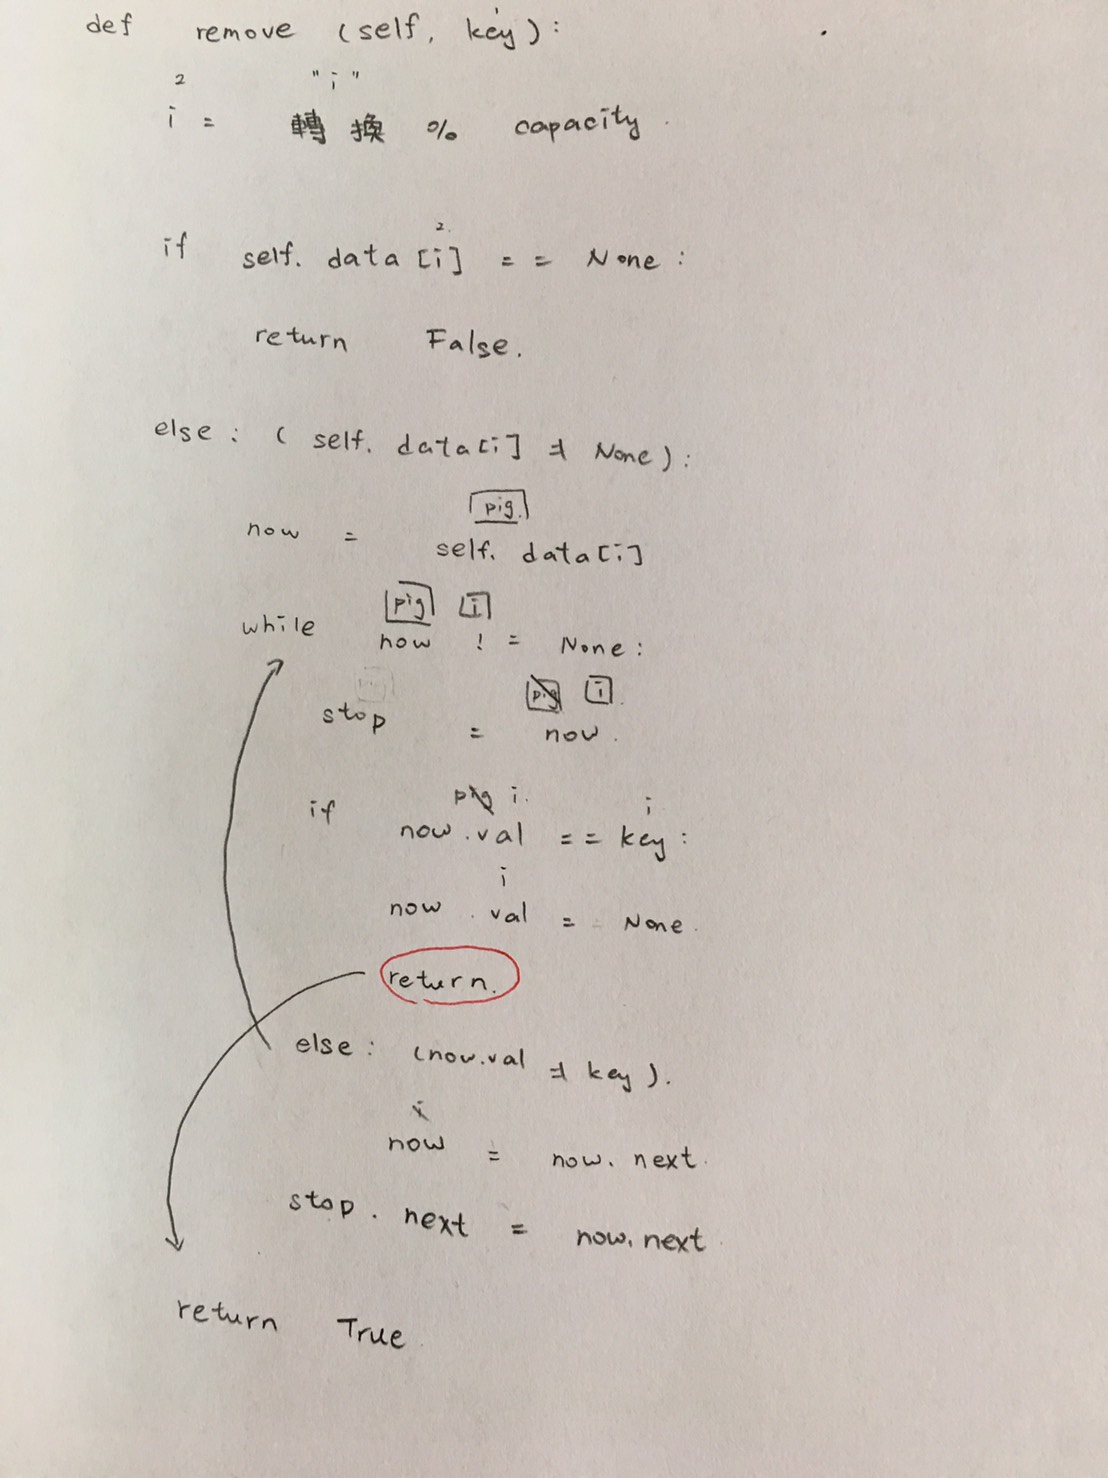 def remove (self, key):
2 "i"
i = 轉換 % capacity.
2.
if self. data [i] == None:
return False.
else: ( self. data[i] ≠ None):
pig.
now = self. data[i]
pig i
while now != None:
pig i
stop = now.
pig i. i
if now.val == key:
i
now.val = None.
return.
else: (now.val ≠ key).
i
now = now. next.
stop. next = now. next
return True